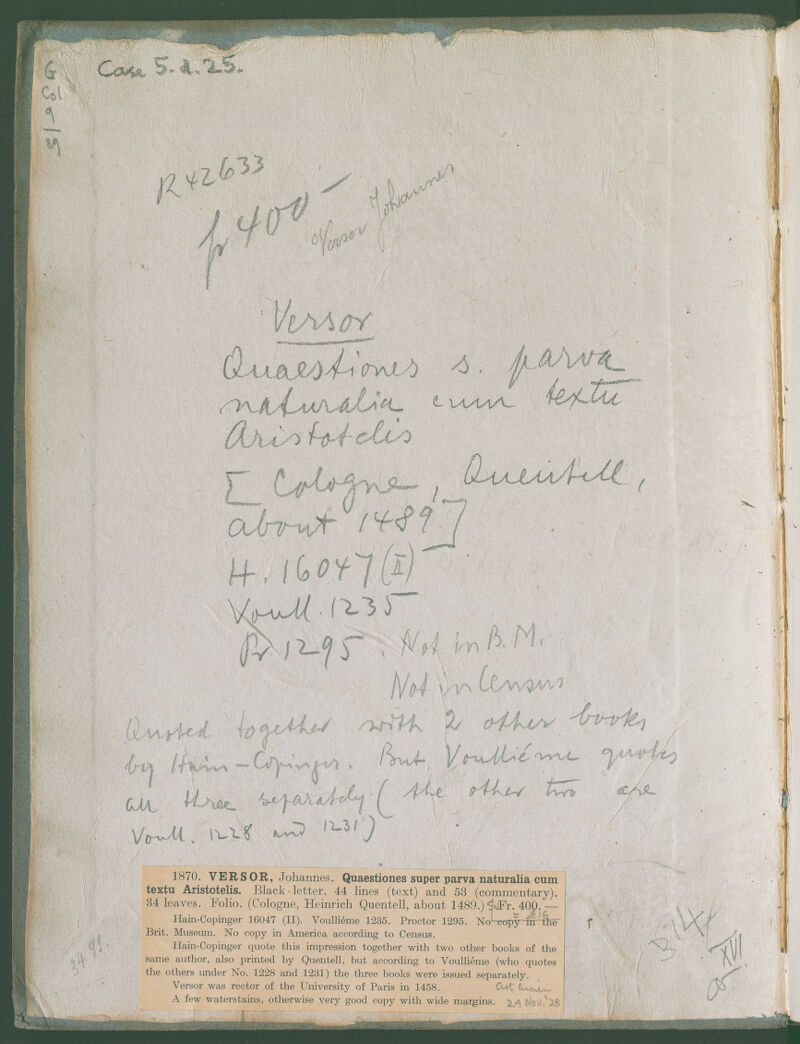 G
Col
9
89
Case 5. a. 25.
R42633
fr 400 —
Versor Johannes
Versor
Quaestiones s. parva
naturalia cum textu
Aristotelis
[Cologne, Quentell,
about 1489]
H. 16047 (II)
Voull. 1235
Pr 1295. Not in B.M.
Not in Census
Quoted together with 2 other books
by Hain-Copinger. But Voulliéme quotes
all three separately (the other two are
Voull. 1228 and 1231)
1870. VERSOR, Johannes. Quaestiones super parva naturalia cum
textu Aristotelis. Black letter, 44 lines (text) and 53 (commentary).
34 leaves. Folio. (Cologne, Heinrich Quentell, about 1489.) Fr. 400. —
= £16
Hain-Copinger 16047 (II). Voulliéme 1235. Proctor 1295. No copy in the
Brit. Museum. No copy in America according to Census.
Hain-Copinger quote this impression together with two other books of the
same author, also printed by Quentell, but according to Voulliéme (who quotes
the others under No. 1228 and 1231) the three books were issued separately.
Versor was rector of the University of Paris in 1458.
Art Ancien
A few waterstains, otherwise very good copy with wide margins.
24 Nov. '28
XVI